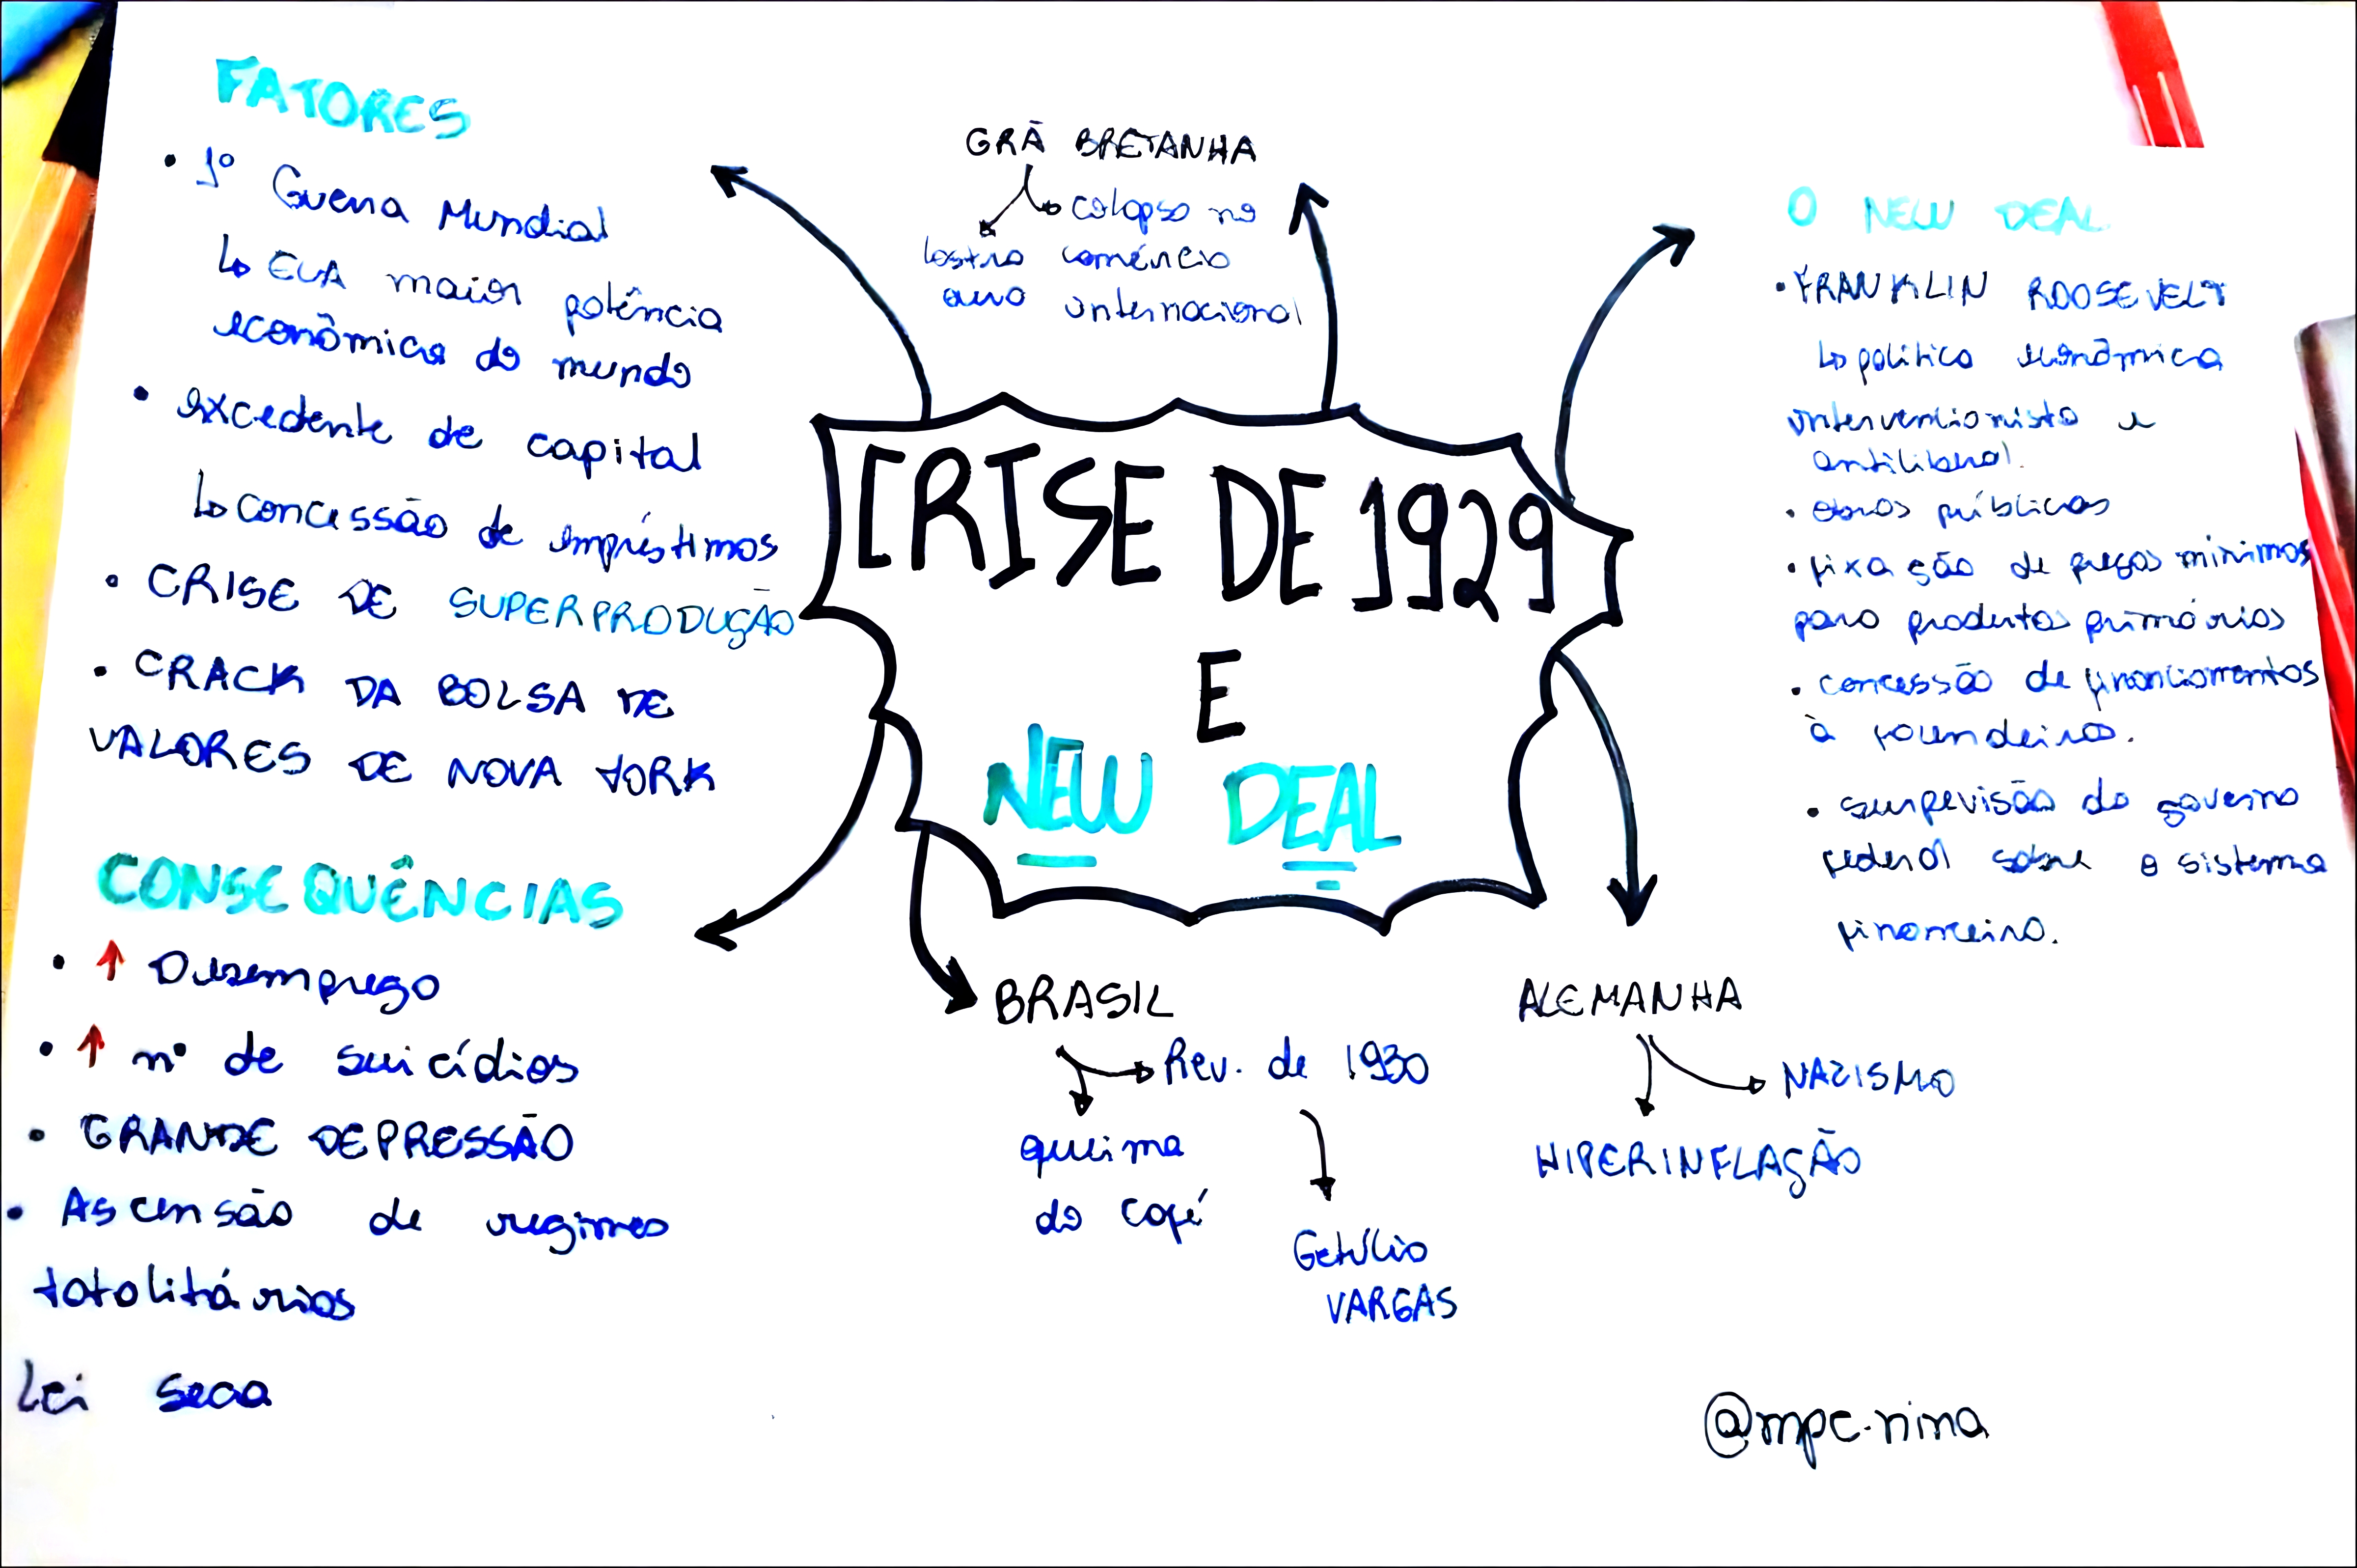 FATORES
• 1º Guerra Mundial
↳ EUA maior potência
econômica do mundo
• excedente de capital
↳ concessão de empréstimos
• CRISE DE SUPERPRODUÇÃO
• CRACK DA BOLSA DE
VALORES DE NOVA YORK
CONSEQUÊNCIAS
• ↑ Desemprego
• ↑ nº de suicídios
• GRANDE DEPRESSÃO
• Ascensão de regimes
totalitários
Lei seca
GRÃ BRETANHA
colapso no
comércio
internacional
lastro
ouro
CRISE DE 1929
E
NEW DEAL
BRASIL
Rev. de 1930
queima
do café
Getúlio
VARGAS
ALEMANHA
NAZISMO
HIPERINFLAÇÃO
O NEW DEAL
• FRANKLIN ROOSEVELT
↳ política econômica
intervencionista e
antiliberal.
• obras públicas
• fixação de preços mínimos
para produtos primários
• concessão de financiamentos
à fazendeiros.
• surpevisão do governo
federal sobre o sistema
financeiro.
@mpc.nina